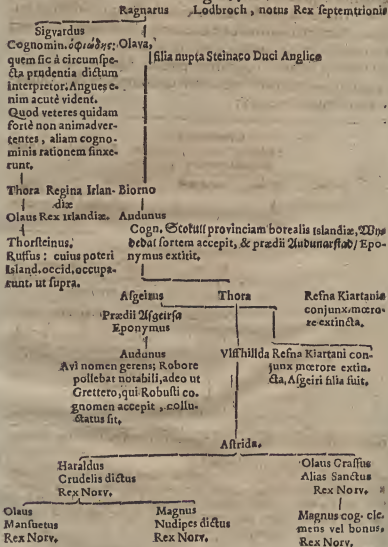 Ragnarus Lodbroch, notus Rex septemtrionis
Sigvardus
Cognomin. ὀφιώδης:
quem sic à circumspe-
cta prudentia dictum
interpretor. Angues e-
nim acutè vident.
Quod veteres quidam
fortè non animadver-
tentes, aliam cogno-
minis rationem finxe-
runt.
Olava,
filia nupta Steinaco Duci Anglico
Thora Regina Irlan-
diæ
Biorno
Olaus Rex Irlandiæ.
Thorsteinus,
Ruffus: cuius poteri
Island. occid. occupa-
runt, ut supra.
Audunus
Cogn. Stokull provinciam borealis Islandiæ, Wyn
debal sortem accepit, & prædii Audunarstad/ Epo-
nymus extitit.
Asgeirus
Prædii Asgeirsa
Eponymus
Thora
Refna Kiartanis
conjunx. mœro-
re extincta.
Audunus
Avi nomen gerens; Robore
pollebat notabili, adeo ut
Grettero, qui Robusti co-
gnomen accepit, collu-
ctatus sit.
Vlffhillda
Refna Kiartani con-
junx mœrore extin-
cta, Asgeiri filia fuit.
Astrida.
Haraldus
Crudelis dictus
Rex Norv.
Olaus Crassus
Alias Sanctus
Rex Norv.
Olaus
Mansuetus
Rex Norv.
Magnus
Nudipes dictus
Rex Norv.
Magnus cog. cle-
mens vel bonus.
Rex Norv.